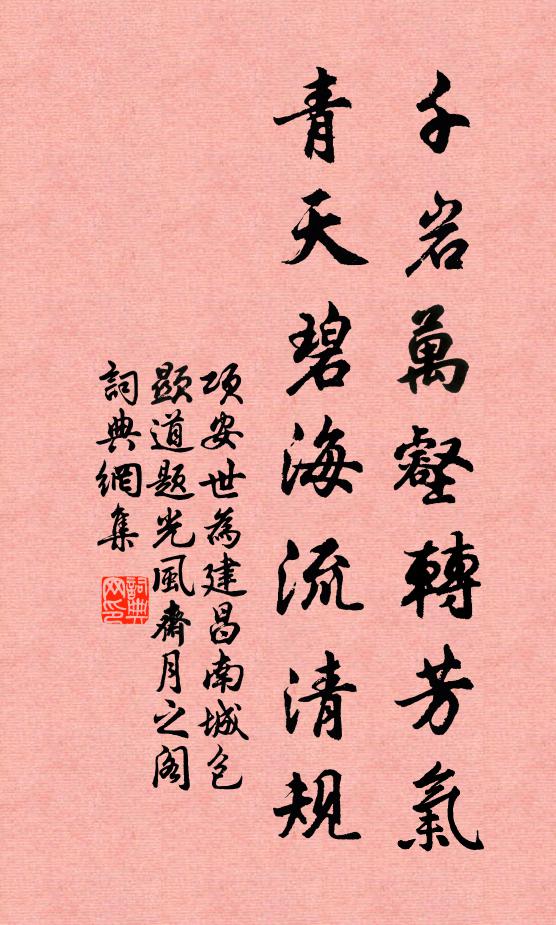 千岩萬壑轉芳氣
青天碧海流清規
項安世為建昌南城包
顯道題光風齋月之阁
詞典網集
詞典
网印